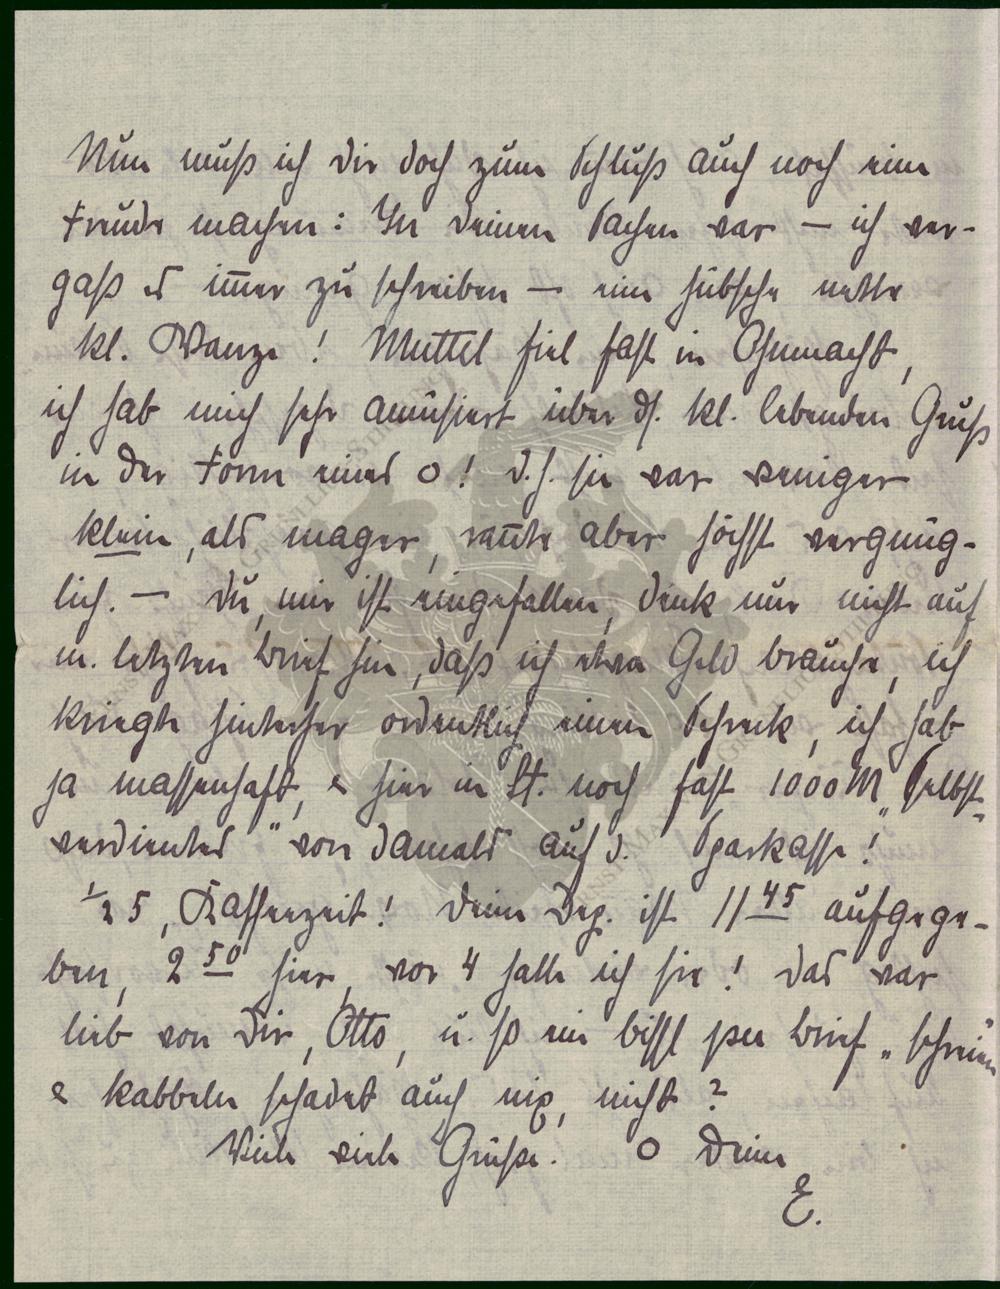 Nun muß ich Dir doch zum Schluß auch noch eine
Freude machen: In Deinen Sachen war — ich ver-
gaß es im̅er zu schreiben — eine hübsche nette
kl. Wanze! Muttel fiel fast in Ohnmacht,
ich hab mich sehr amüsiert über ds. kl. lebenden Gruß
in der Form eines O! D.h. sie war weniger
klein, als mager, rañte aber höchst vergnüg-
lich. — Du, mir ist eingefallen, denk nur nicht auf
m. letzten Brief hin, daß ich etwa Geld brauche, ich
kriegte hinterher ordentlich einen Schreck, ich hab
ja massenhaft, & hier in St. noch fast 1000 M „Selbst-
verdientes" von damals auf d. Sparkasse!
½ 5, Kaffeezeit! Deine Dep. ist 11 45 aufgege-
ben, 2 50 hier, vor 4 hatte ich sie! Das war
lieb von Dir, Otto, u. so ein bissl per Brief „schreien"
& kabbeln schadet auch nix, nicht?
Viele viele Grüße. O Deine
E.